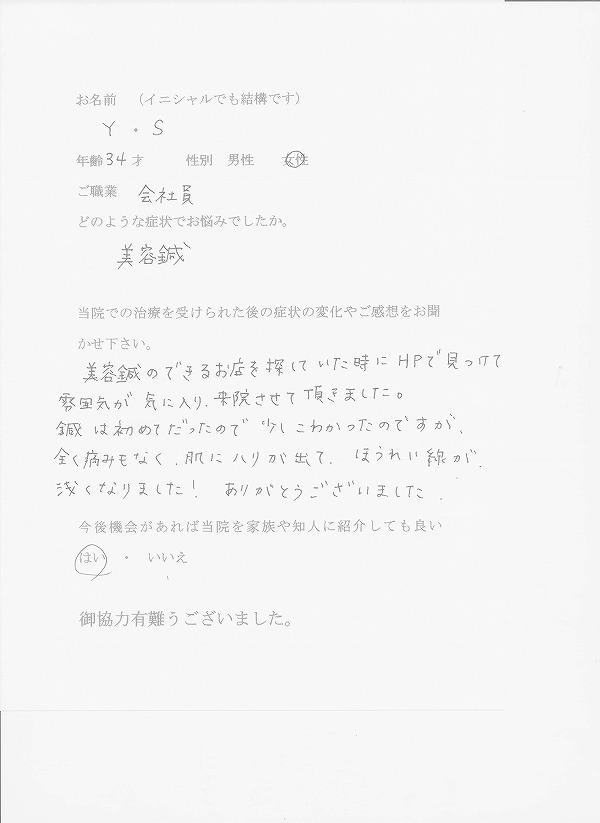 お名前　（イニシャルでも結構です）
Y・S
年齢34才　性別　男性　女性
ご職業　会社員
どのような症状でお悩みでしたか。
美容鍼
当院での治療を受けられた後の症状の変化やご感想をお聞
かせ下さい。
美容鍼のできるお店を探していた時にHPで見つけて
雰囲気が気に入り、来院させて頂きました。
鍼は初めてだったので少しこわかったのですが、
全く病みもなく、肌にハリが出て、ほうれい線が、
浅くなりました！ありがとうございました。
今後機会があれば当院を家族や知人に紹介しても良い
はい　・　いいえ
御協力有難うございました。